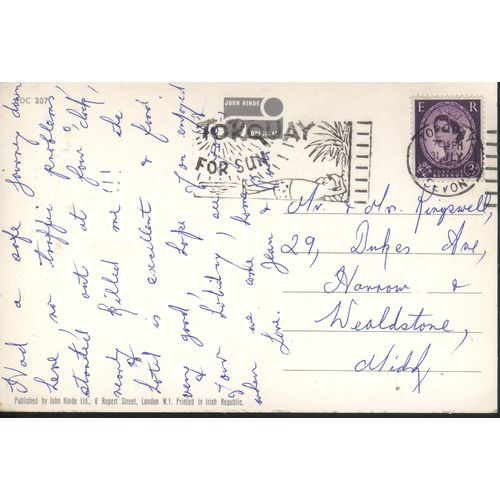 2DC 207
JOHN HINDE
ORIGINAL
TORQUAY
FOR SUN
E R
TORQUAY
JLY
DEVON
POSTAGE
REVENUE
Had a safe journey down
here no traffic problems
started out at four 'clock'
nearly killed me!!! The
hotel is excellent & food
very good, hope you enjoyed
your holiday, see
when we come home
Love. Jean &
Mr. & Mrs. Kingswell,
29, Dukes Ave,
Harrow &
Wealdstone,
Midd
Published by John Hinde Ltd., 6 Rupert Street, London W.1. Printed in Irish Republic.